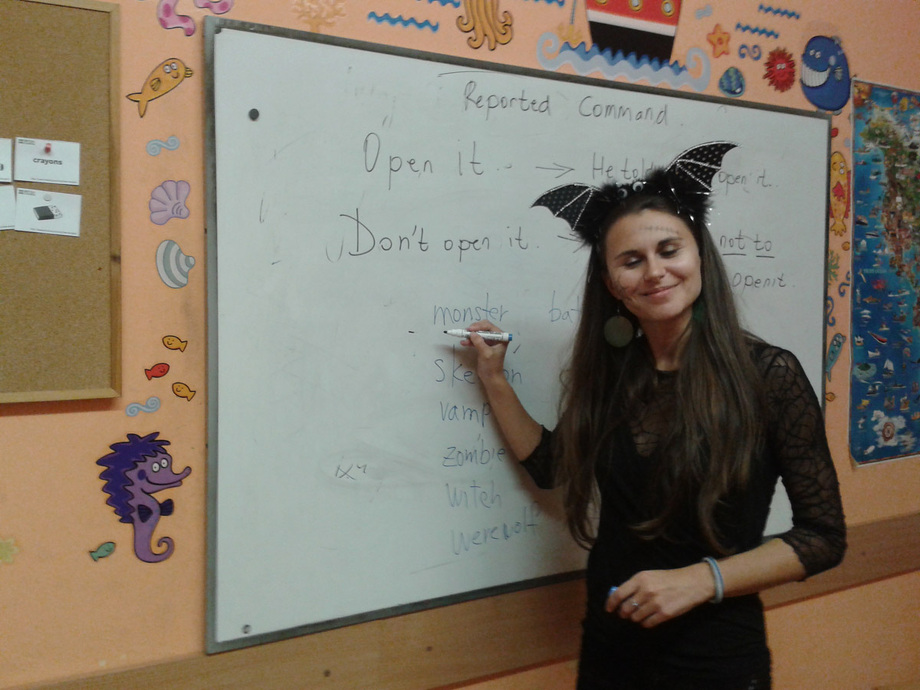 crayons
Reported Command
Open it.. → He told open it.
Don't open it. → not to
open it.
monster bat
vamp
zombie
witch
werewolf